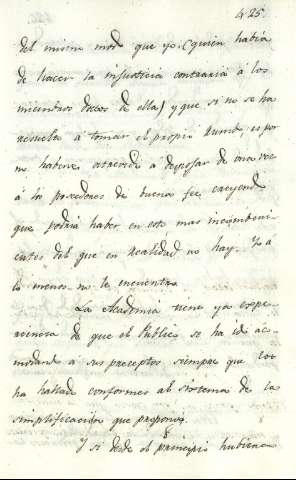 425.
del mismo modo que yo (quien habia
de hacer la injusticia contraria á los
miembros de ella) y que si no se ha
resuelto á tomar el propio rumbo es por
no haberse atrevido á despojar de una vez
á los poseedores de buena fee, creyendo
que podria haber en esto mas inconveni
entes del que en realidad no hay. Yo á
lo menos no le encuentro.
La Academia tiene ya espe
riencia de que el Publico se ha ido aco
modando á sus preceptos siempre que los
ha hallado conformes al sistema de la
simplificacion que propongo.
Y si desde el principio hubiera